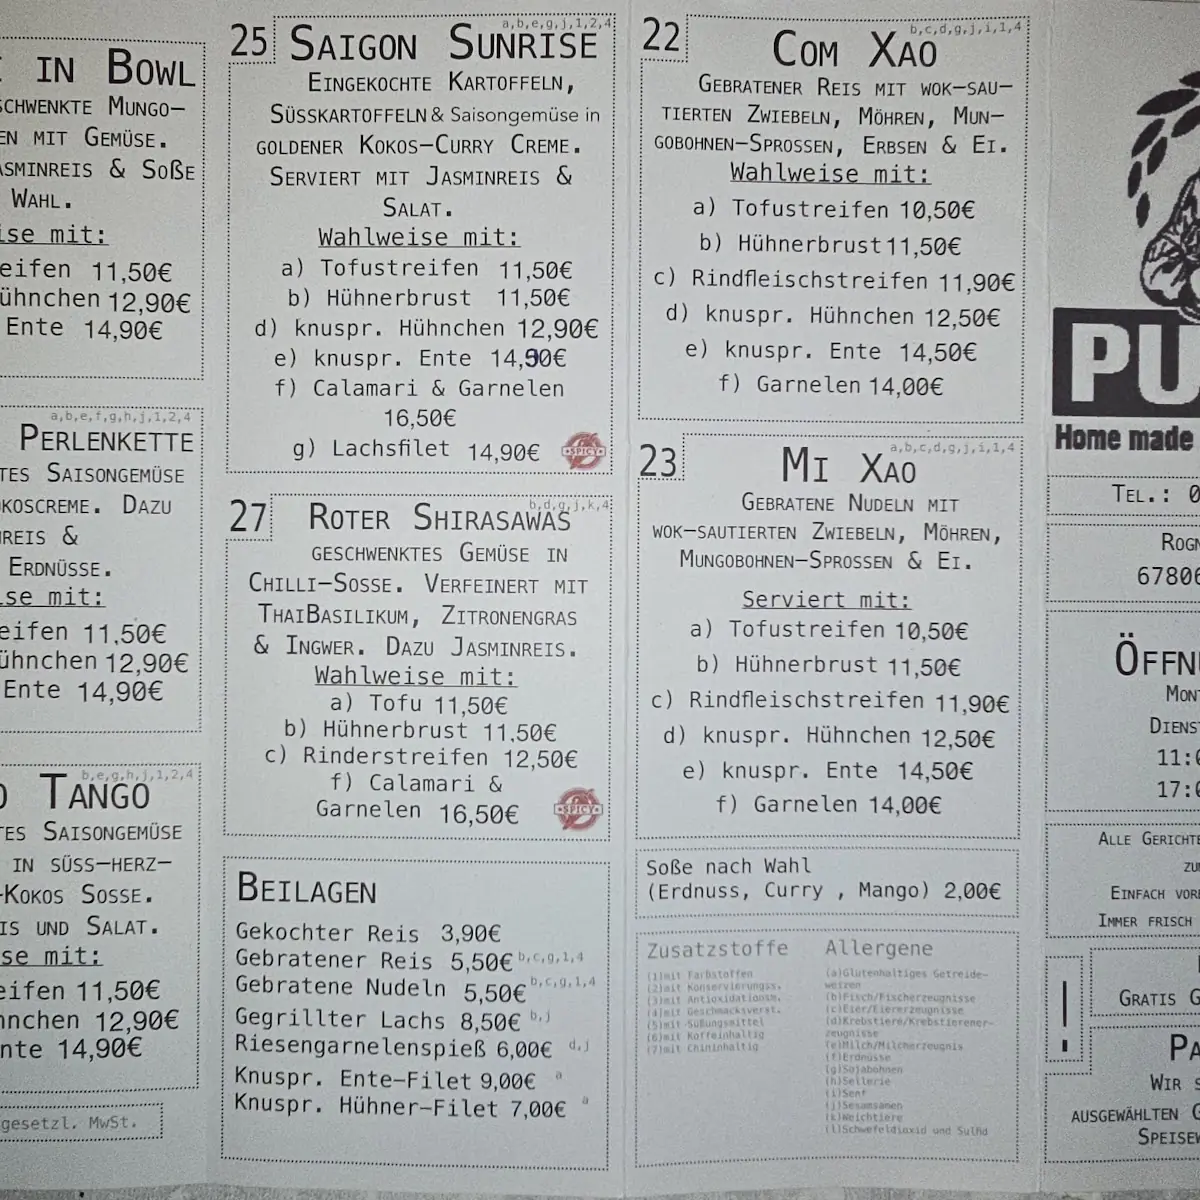 IN BOWL
SCHWENKTE MUNGO-
EN MIT GEMÜSE.
ASMINREIS & SOßE
WAHL.
ise mit:
reifen 11,50€
ühnchen 12,90€
Ente 14,90€
a,b,e,f,g,h,j,1,2,4
PERLENKETTE
TES SAISONGEMÜSE
OKOSCREME. DAZU
NREIS &
ERDNÜSSE.
ise mit:
eifen 11,50€
ühnchen 12,90€
Ente 14,90€
b,e,g,h,j,1,2,4
O TANGO
TES SAISONGEMÜSE
IN SÜSS-HERZ-
-KOKOS SOSSE.
IS UND SALAT.
se mit:
eifen 11,50€
hnchen 12,90€
nte 14,90€
gesetzl. MwSt.
a,b,e,g,j,1,2,4
25 SAIGON SUNRISE
EINGEKOCHTE KARTOFFELN,
SÜSSKARTOFFELN & Saisongemüse in
GOLDENER KOKOS-CURRY CREME.
SERVIERT MIT JASMINREIS &
SALAT.
Wahlweise mit:
a) Tofustreifen 11,50€
b) Hühnerbrust 11,50€
d) knuspr. Hühnchen 12,90€
e) knuspr. Ente 14,90€
f) Calamari & Garnelen
16,50€
g) Lachsfilet 14,90€
SPICY
b,d,g,j,k,4
27 ROTER SHIRASAWAS
GESCHWENKTES GEMÜSE IN
CHILLI-SOSSE. VERFEINERT MIT
THAIBASILIKUM, ZITRONENGRAS
& INGWER. DAZU JASMINREIS.
Wahlweise mit:
a) Tofu 11,50€
b) Hühnerbrust 11,50€
c) Rinderstreifen 12,50€
f) Calamari &
Garnelen 16,50€
SPICY
BEILAGEN
Gekochter Reis 3,90€
Gebratener Reis 5,50€ b,c,g,1,4
Gebratene Nudeln 5,50€ b,c,g,1,4
Gegrillter Lachs 8,50€ b,j
Riesengarnelenspieß 6,00€ d,j
Knuspr. Ente-Filet 9,00€ a
Knuspr. Hühner-Filet 7,00€ a
b,c,d,g,j,i,1,4
22 COM XAO
GEBRATENER REIS MIT WOK-SAU-
TIERTEN ZWIEBELN, MÖHREN, MUN-
GOBOHNEN-SPROSSEN, ERBSEN & EI.
Wahlweise mit:
a) Tofustreifen 10,50€
b) Hühnerbrust 11,50€
c) Rindfleischstreifen 11,90€
d) knuspr. Hühnchen 12,50€
e) knuspr. Ente 14,50€
f) Garnelen 14,00€
a,b,c,d,g,j,i,1,4
23 MI XAO
GEBRATENE NUDELN MIT
WOK-SAUTIERTEN ZWIEBELN, MÖHREN,
MUNGOBOHNEN-SPROSSEN & EI.
Serviert mit:
a) Tofustreifen 10,50€
b) Hühnerbrust 11,50€
c) Rindfleischstreifen 11,90€
d) knuspr. Hühnchen 12,50€
e) knuspr. Ente 14,50€
f) Garnelen 14,00€
Soße nach Wahl
(Erdnuss, Curry , Mango) 2,00€
Zusatzstoffe
(1)mit Farbstoffen
(2)mit Konservierungss.
(3)mit Antioxidationsm.
(4)mit Geschmacksverst.
(5)mit Süßungsmittel
(6)mit Koffeinhaltig
(7)mit Chininhaltig
Allergene
(a)Glutenhaltiges Getreide-
weizen
(b)Fisch/Fischerzeugnisse
(c)Eier/Eiererzeugnisse
(d)Krebstiere/Krebstierener-
zeugnisse
(e)Milch/Milcherzeugnis
(f)Erdnüsse
(g)Sojabohnen
(h)Sellerie
(i)Senf
(j)Sesamsamen
(k)Weichtiere
(l)Schwefeldioxid und Sulfid
PU
Home made
TEL.: 0
ROGN
67806
ÖFFN
MON
DIENST
11:0
17:0
ALLE GERICHTE
ZU
EINFACH VOR
IMMER FRISCH
!
GRATIS G
PA
WIR S
AUSGEWÄHLTEN G
SPEISEW